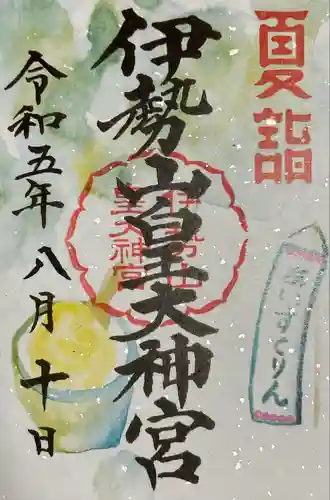 夏詣
伊勢山皇大神宮
伊勢山
皇大神宮
令和五年八月十日
あいすくりん